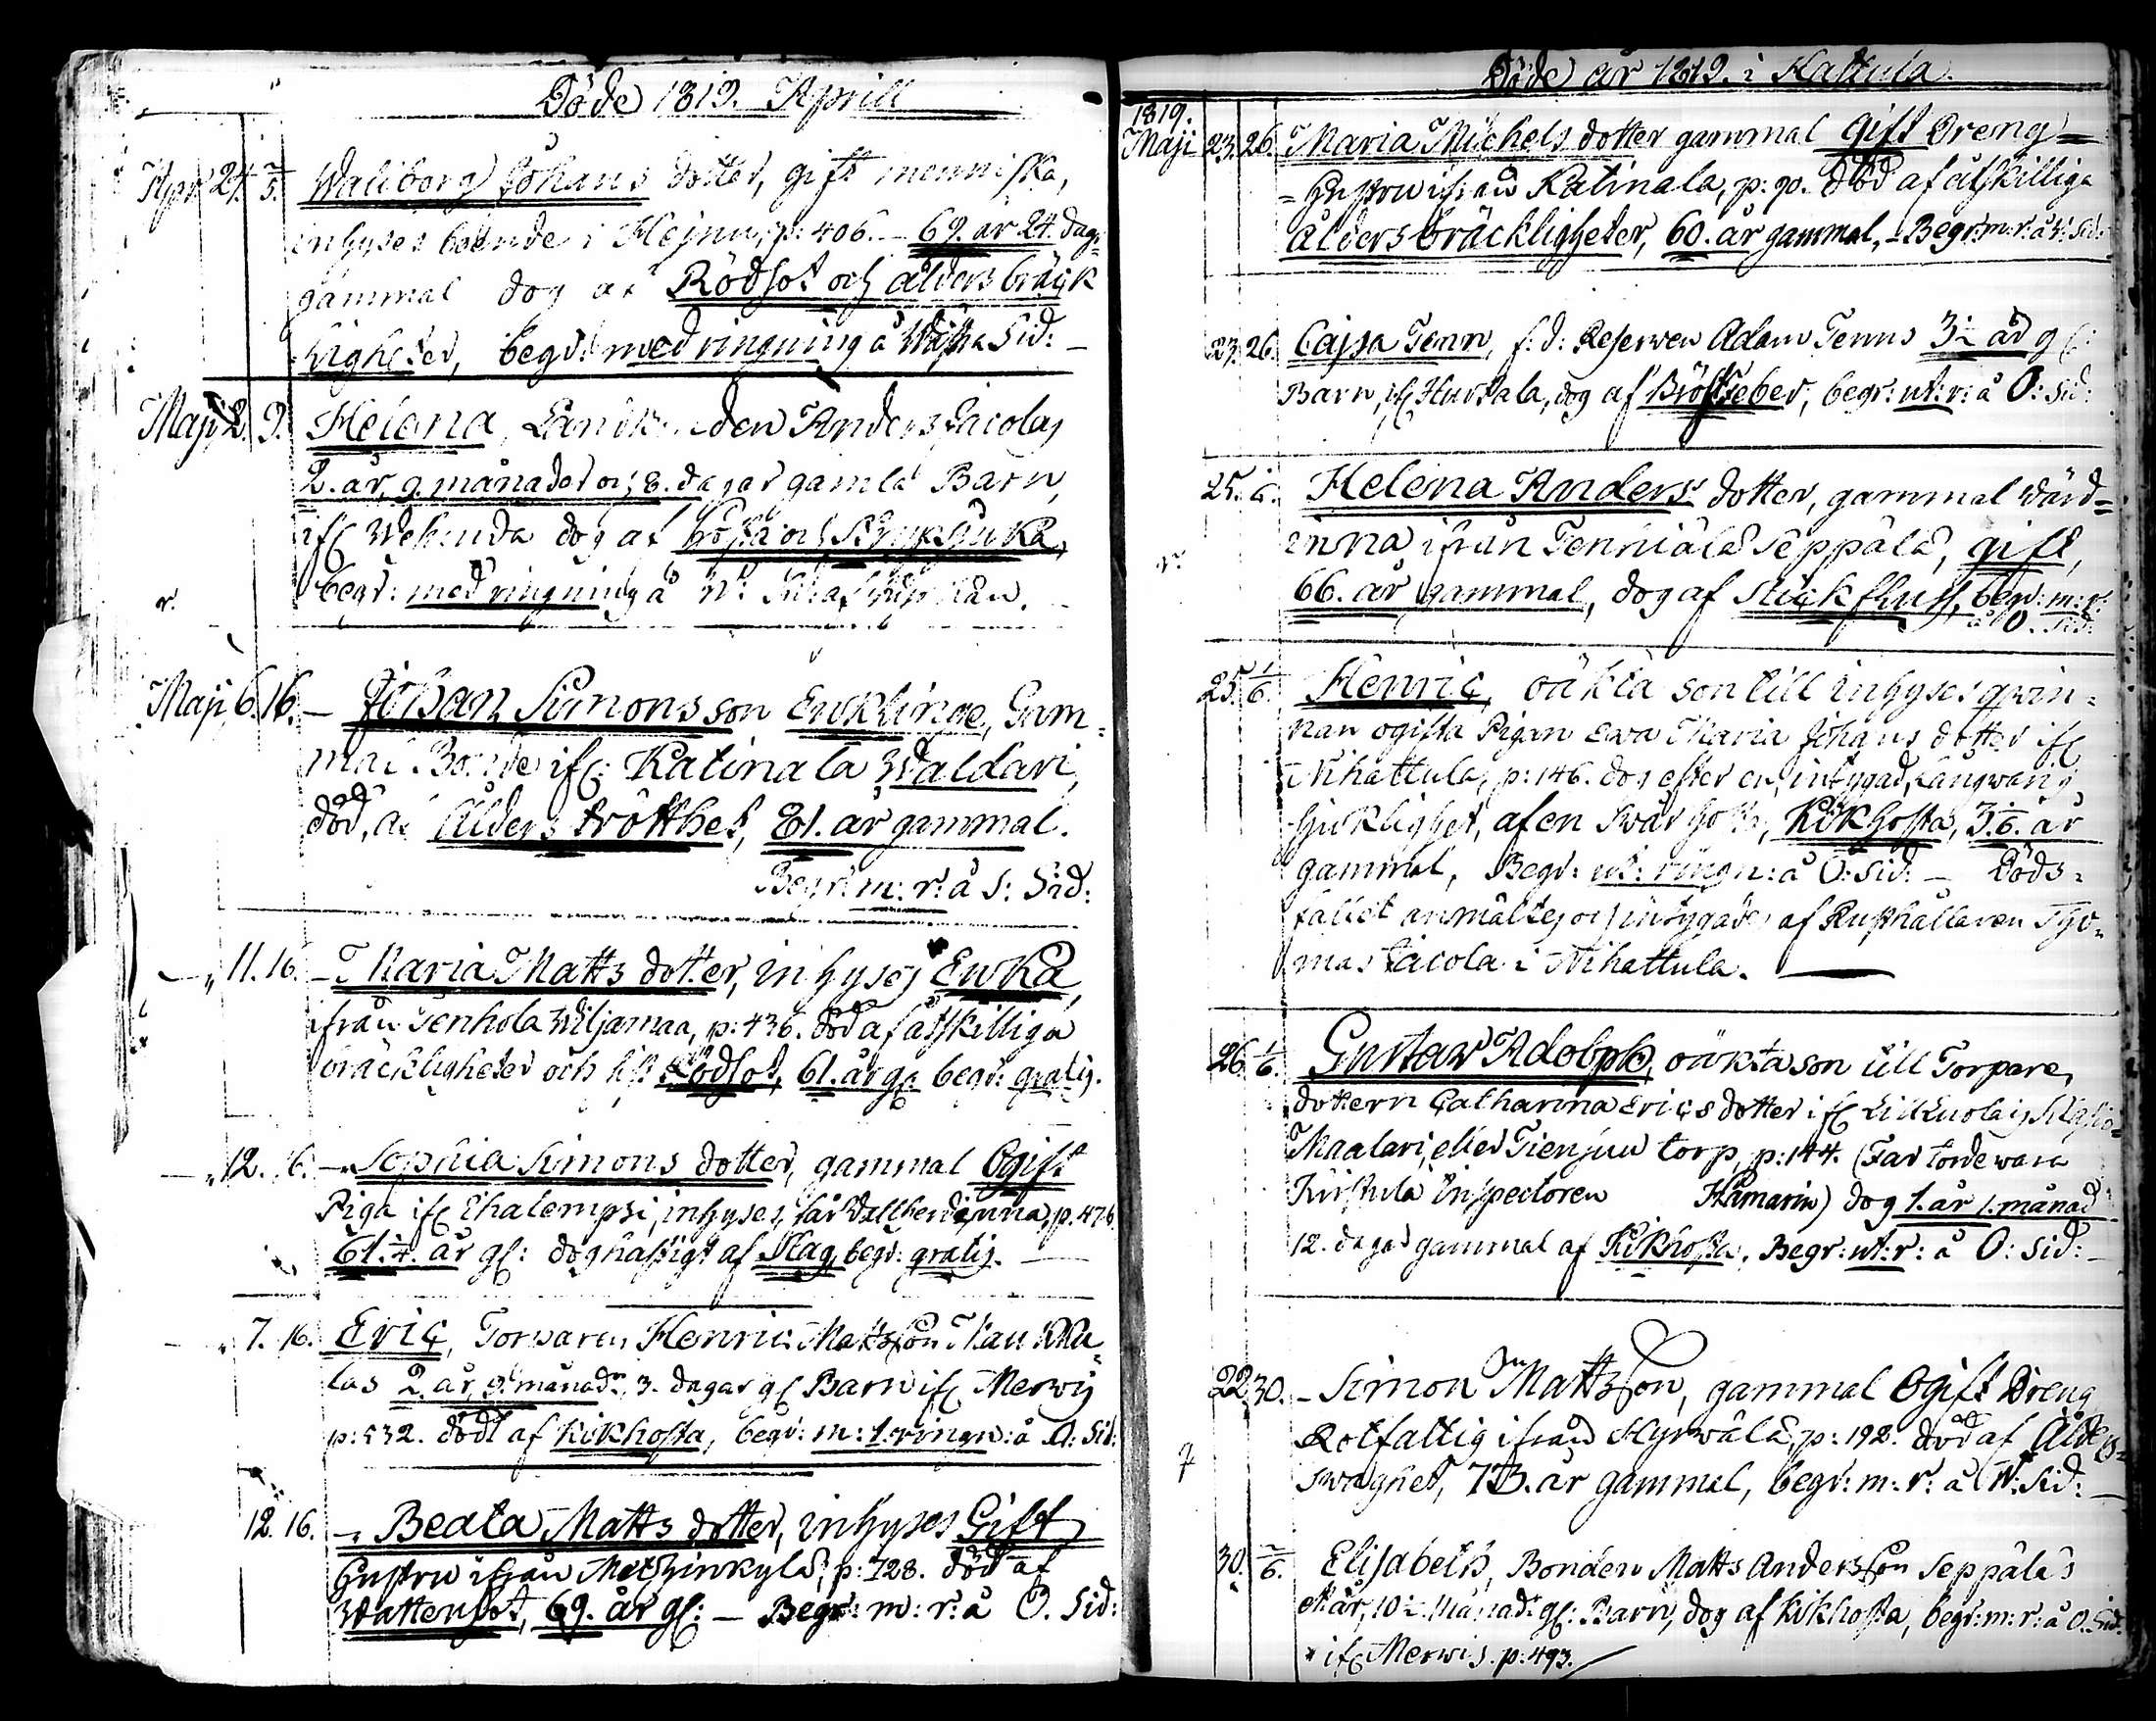 Döde 1819. Aprill
Apr. 24. 2/5. Waliborg Johans dotter, gift menniska,
inhyses boende i Hejnu, p: 406. – 69. år 24. dag:
gammal dog af Rödsot och ålders bräck
ligheter, begr: med ringning å Sid: –
Maji 2. 9. Helena, Anders Jacolas
2. år, 9. månader och 8. dagar gamla Barn,
ifr dog af hosta och
begr: med ringning å
r.
Maji 6. 16. – Johan Simons son Enklinge, Gam=
mal Bonde ifr: Katinala Waldari,
död, af Ålders trötthet, 81. år gammal.
Begr: m: r: å S: Sid:
– „ 11. 16. – Maria Matts dotter, inhyses Enka,
ifrån Tenhola Wiljamaa, p: 436. död af åtskilliga
bräckligheter och Rödsot, 61. år g: begr: gratis.
– „ 12. 16. – Sophia Simons dotter, gammal Ogift
Piga ifr Ihalempsi, inhyses, p. 476.
61. 1/4. år gl: dog hastigt af Slag, begr: gratis. –
– „ 7. 16. Eric, Torparen Henric Mattsson Maukku=
las 2. år, 9. månadr, 3. dagar gl Barn ifr Merwis
p: 532. dödt af Kikhosta, begr: m: l: ringn: å N: Sid:
12. 16. – Beata Matts dotter, inhyses Gift
Hustru ifrån Metzinkylä, p: 728. död af
Wattensot, 69. år gl: – Begr: m: r: å O. Sid:
Döde år 1819. i Hattula.
1819.
Maji 23. 26. Maria Michels dotter gammal gift Dreng=
=Hustru ifrån Katinala, p: 90. död af åtskilliga
ålders bräckligheter, 60. år gammal, – Begr: m: r: å Sid:
23. 26. Cajsa Tenn, f: d: Reserven Adam Tenns 3 1/2 år gl:
Barn, ifr Hurtala, dog af Bröstfeber, begr: ut: r: å O: Sid:
25. Helena Anders dotter, gammal Wärd=
inna ifrån Tenniälä Seppälä, gift,
66. år gammal, dog af Stickfluss, begr: m: r:
å O. Sid:
r.
25. 1/6. Henric, oäkta son till inhyses qwin=
nan ogifta Pigan Ewa Maria Johans dotter ifr
Nihattula, p: 146. dog efter en, intygad, långwarig
sjuklighet, af en swår hosta, Kikhosta, år
gammal, Begr: ut: ringn: å O: Sid: – Döds=
fallet anmältes och intygades af Rusthållaren Tho=
mas Jacola i Nihattula. –
26. 1/6. Gustav Adolph, oäkta son till Torpare,
dottern Catharina Erics dotter ifr
Maalari, eller Tienjuu torp, p: 144. (Far torde wara
Inspectoren Hamarin) dog 1. år 1. månad
12. dagar gammal af Kikhosta. Begr: ut: r: å O: Sid: –
22. 30. – Simon Mattsson, gammal Ogift Dreng
Rotfattig ifrån Hyrwälä, p: 192. död af Ålders=
swaghet, 73. år gammal, begr: m: r: å W: Sid: –
30. 2/6. Elisabeth, Bonden Matts Andersson Seppäläs
ett år, 10 1/2 månadr gl: Barn, dog af kikhosta, begr: m: r: å O. Sid.
* ifr Merwis. p: 493.